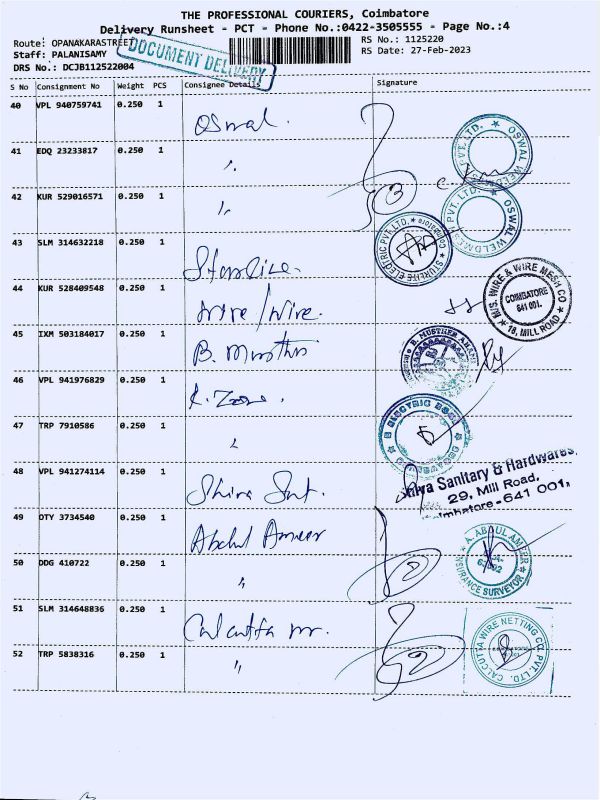 THE PROFESSIONAL COURIERS, Coimbatore
Delivery Runsheet - PCT - Phone No.:0422-3505555 - Page No.:4
Route: OPANAKARASTREET
RS No.: 1125220
Staff: PALANISAMY
RS Date: 27-Feb-2023
DRS No.: DCJB112522004
DOCUMENT DELIVERY
S No Consignment No Weight PCS Consignee Details Signature
40 VPL 940759741 0.250 1 Oswal.
OSWAL WELDMESH PVT. LTD.
41 EDQ 23233817 0.250 1 "
3
42 KUR 529016571 0.250 1 "
OSWAL WELDMESH PVT. LTD.
43 SLM 314632218 0.250 1
ELECTRIC PVT. LTD.
44 KUR 528409548 0.250 1 Wire/Wire.
M/S. WIRE & WIRE MESH CO
COIMBATORE
641 001.
18, MILL ROAD
45 IXM 503184017 0.250 1 B.
46 VPL 941976829 0.250 1 K. Zone.
47 TRP 7910586 0.250 1 "
48 VPL 941274114 0.250 1 Shiva Snt.
Shiva Sanitary & Hardwares,
29, Mill Road,
Coimbatore-641 001,
49 DTY 3734540 0.250 1 Abdul Ameer
A. ABDUL AMEER
INSURANCE SURVEYOR
50 DDG 410722 0.250 1 "
2
51 SLM 314648836 0.250 1 Calcutta
CALCUTTA WIRE NETTING CO. PVT. LTD.
52 TRP 5838316 0.250 1 "
2